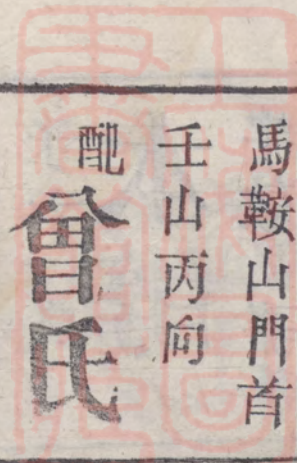 馬鞍山門首
壬山丙向
配曾氏